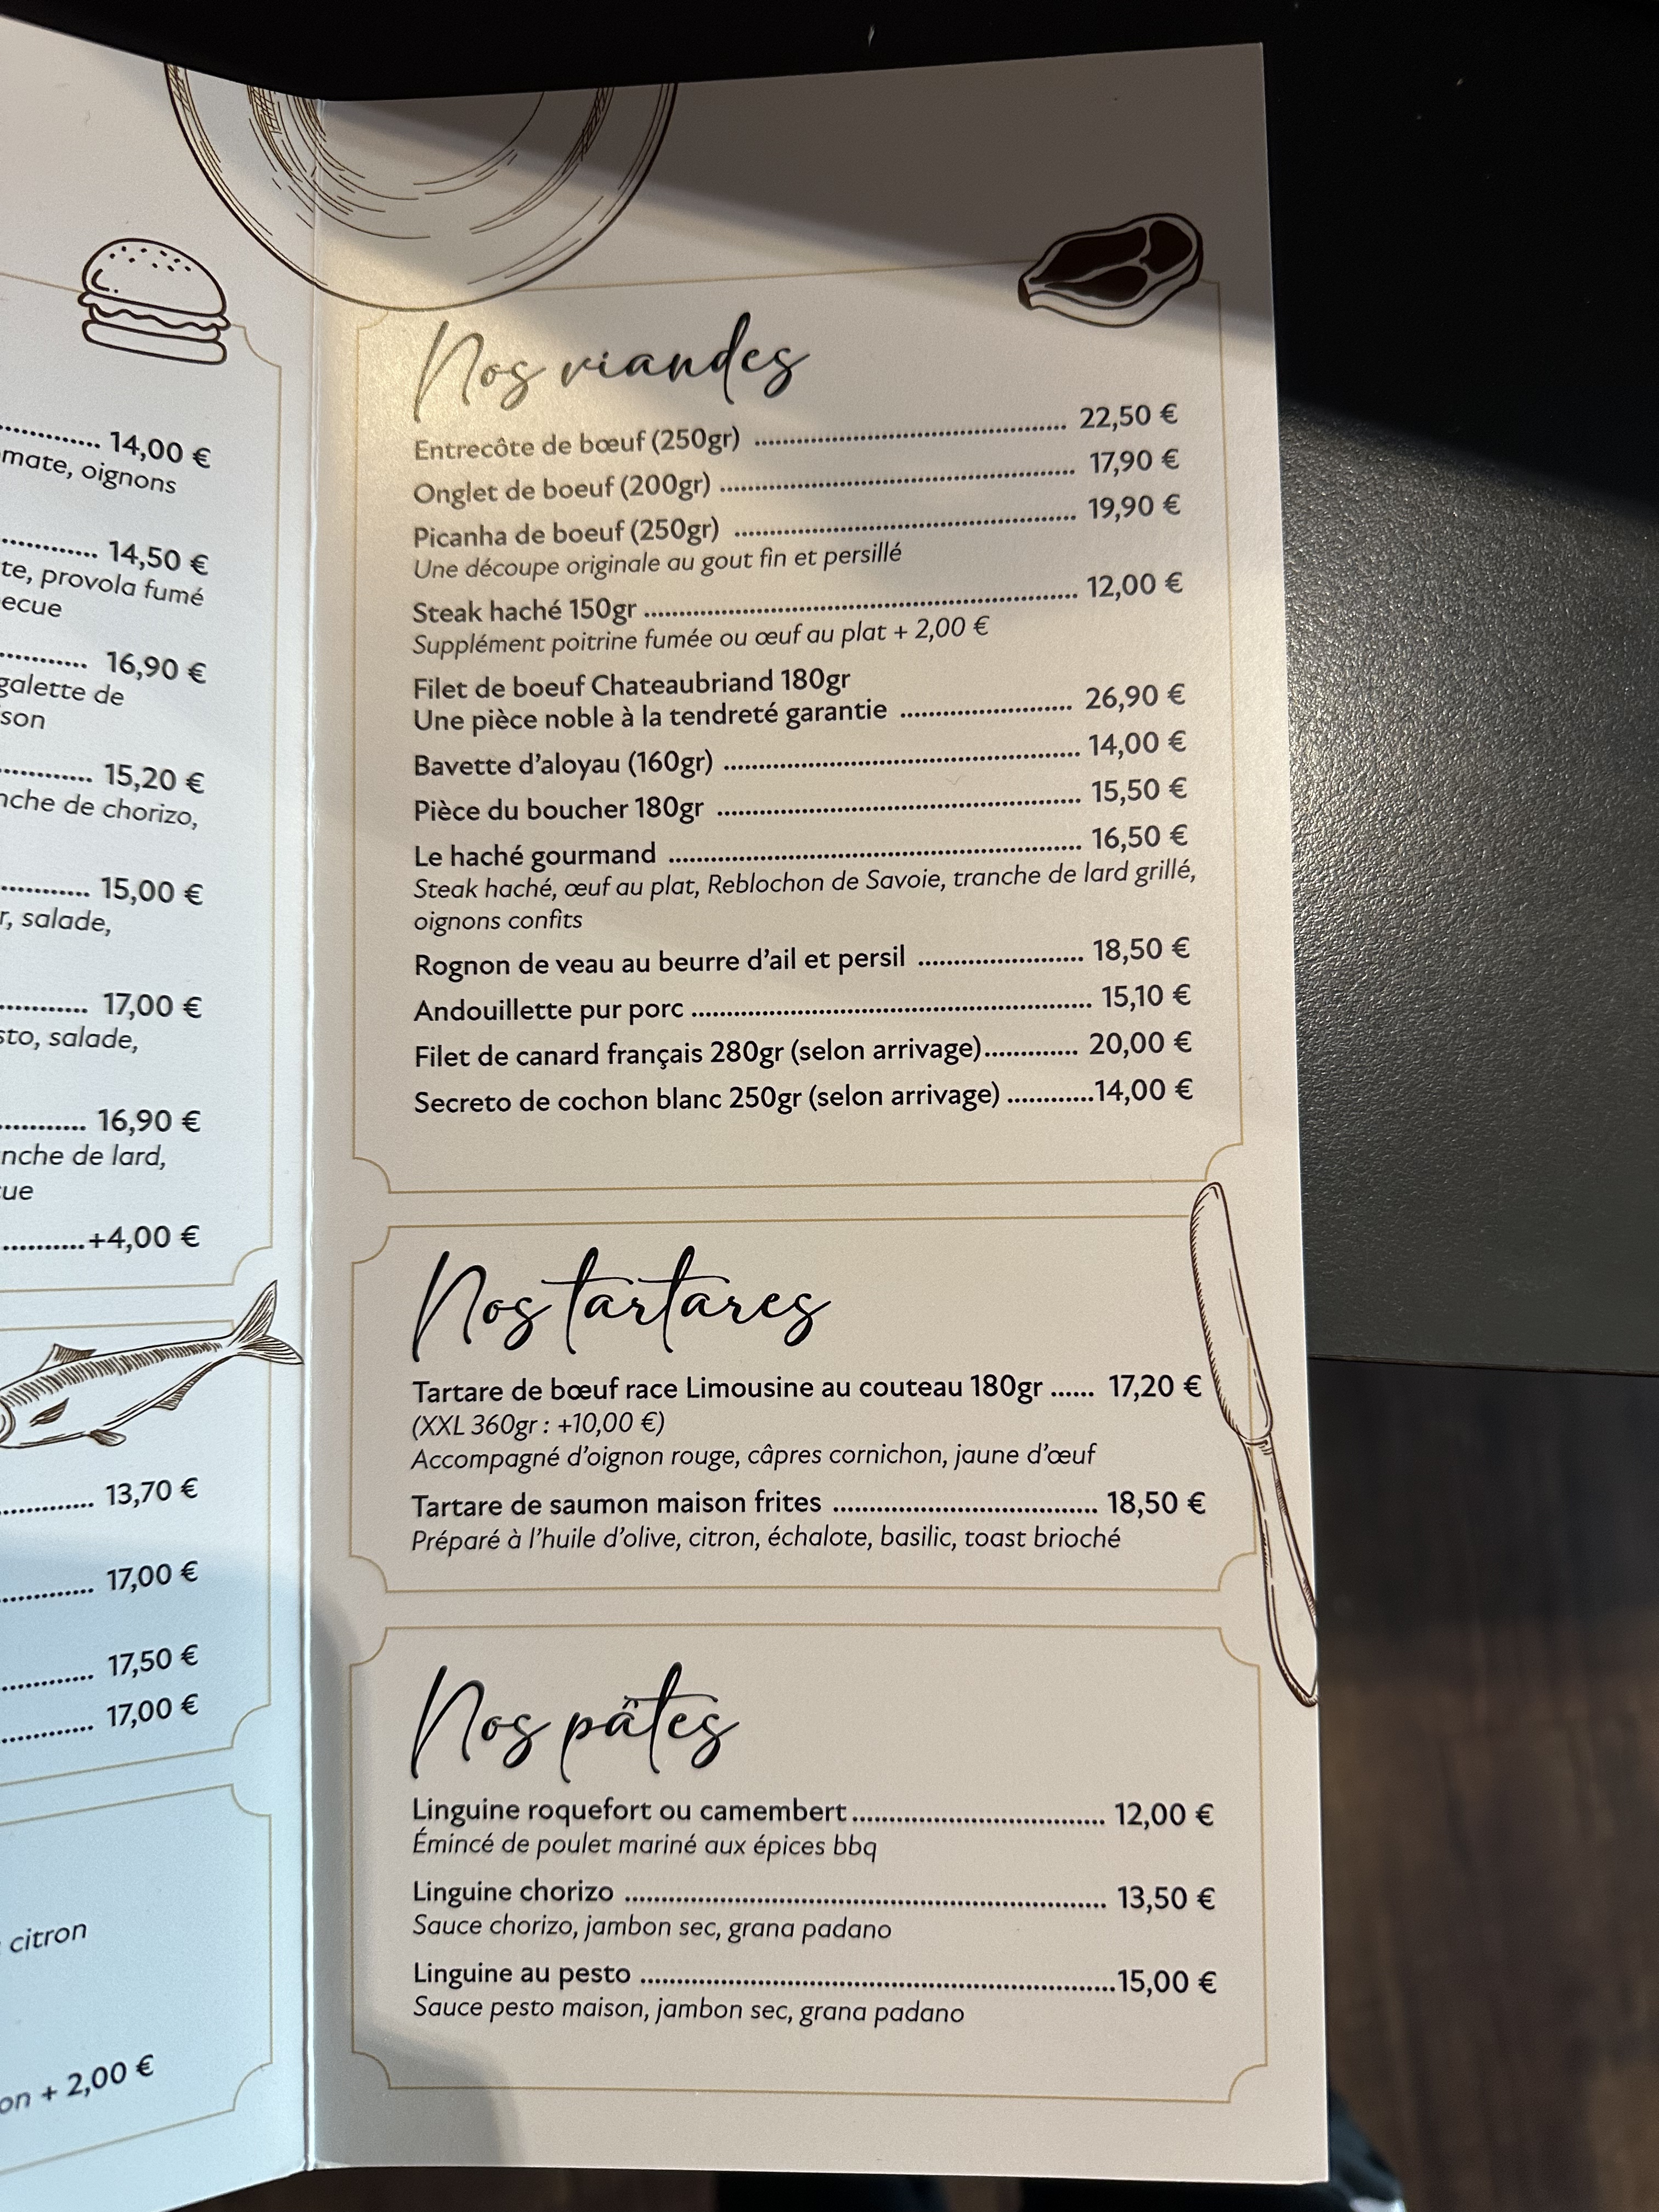 14,00 €
mate, oignons
14,50 €
te, provola fumé
ecue
16,90 €
galette de
son
15,20 €
nche de chorizo,
15,00 €
r, salade,
17,00 €
sto, salade,
16,90 €
nche de lard,
ue
+4,00 €
13,70 €
17,00 €
17,50 €
17,00 €
citron
on + 2,00 €
Nos viandes
Entrecôte de bœuf (250gr) 22,50 €
Onglet de boeuf (200gr) 17,90 €
Picanha de boeuf (250gr) 19,90 €
Une découpe originale au gout fin et persillé
Steak haché 150gr 12,00 €
Supplément poitrine fumée ou œuf au plat + 2,00 €
Filet de boeuf Chateaubriand 180gr
Une pièce noble à la tendreté garantie 26,90 €
Bavette d'aloyau (160gr) 14,00 €
Pièce du boucher 180gr 15,50 €
Le haché gourmand 16,50 €
Steak haché, œuf au plat, Reblochon de Savoie, tranche de lard grillé,
oignons confits
Rognon de veau au beurre d'ail et persil 18,50 €
Andouillette pur porc 15,10 €
Filet de canard français 280gr (selon arrivage) 20,00 €
Secreto de cochon blanc 250gr (selon arrivage) 14,00 €
Nos tartares
Tartare de bœuf race Limousine au couteau 180gr 17,20 €
(XXL 360gr : +10,00 €)
Accompagné d'oignon rouge, câpres cornichon, jaune d'œuf
Tartare de saumon maison frites 18,50 €
Préparé à l'huile d'olive, citron, échalote, basilic, toast brioché
Nos pâtes
Linguine roquefort ou camembert 12,00 €
Émincé de poulet mariné aux épices bbq
Linguine chorizo 13,50 €
Sauce chorizo, jambon sec, grana padano
Linguine au pesto 15,00 €
Sauce pesto maison, jambon sec, grana padano